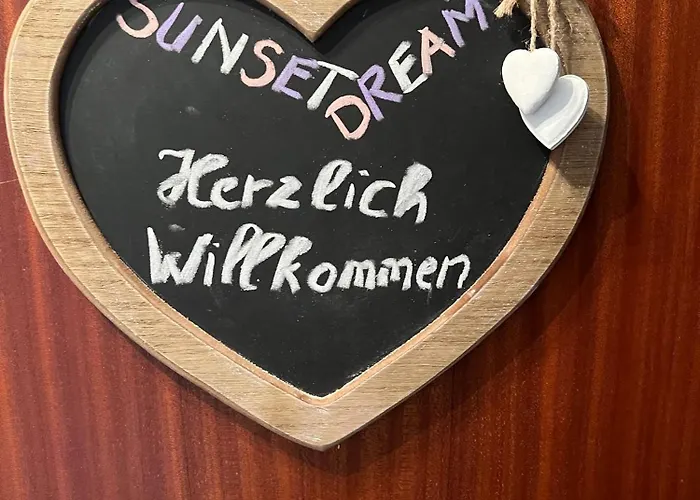 SUNSETDREAM
Herzlich
Willkommen